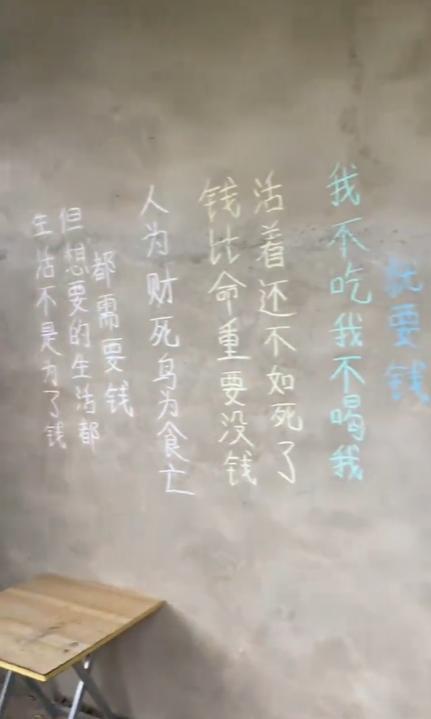 生活不是为了钱
但想要的生活都
都需要钱
人为财死鸟为食亡
钱比命重要没钱
活着还不如死了
我不吃我不喝我
就要钱